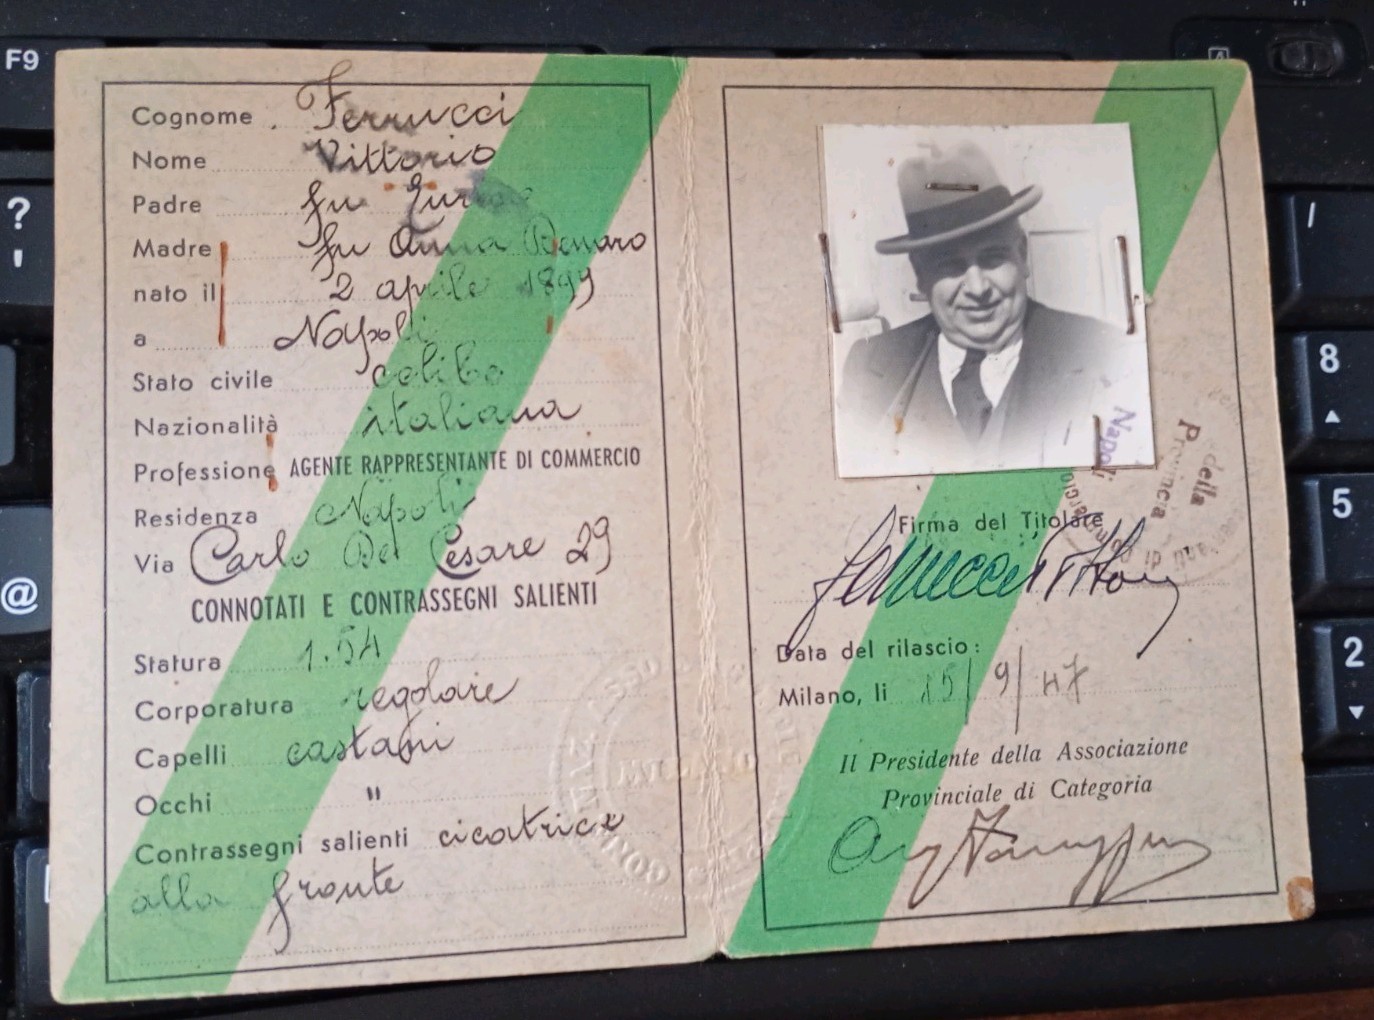 Cognome Ferrucci
Nome Vittorio
Padre fu
Madre fu Anna
nato il 2 aprile 1899
a Napoli
Stato civile celibe
Nazionalità italiana
Professione AGENTE RAPPRESENTANTE DI COMMERCIO
Residenza Napoli
Via Carlo De Cesare 29
CONNOTATI E CONTRASSEGNI SALIENTI
Statura 1.54
Corporatura regolare
Capelli castani
Occhi "
Contrassegni salienti cicatrice
alla fronte
Napoli
della
Provincia
Firma del Titolare
Data del rilascio:
Milano, li 15/9/47
Il Presidente della Associazione
Provinciale di Categoria
MILANO
F9
?
@
/
8
5
2